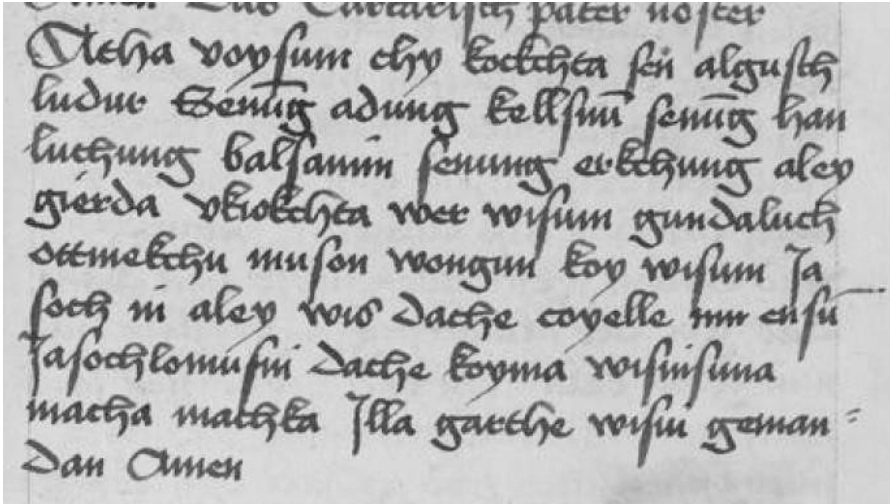 Amen Das Tartarisch pater noster
Atha voysum chy kockchta sen algusch
ludur Senūg adung kellsuū senūg han
luchung balsanin senung erkchung aley
gierda vkiokchta wer wisum gundaluch
ottmekchu muson wongun koy wisum Ja
soch ni aley wis dache coyelle nin ensū
Jasochlomusin dache koyma wisinisuna
macha machka Illa garthe wisin geman⸗
dan Amen